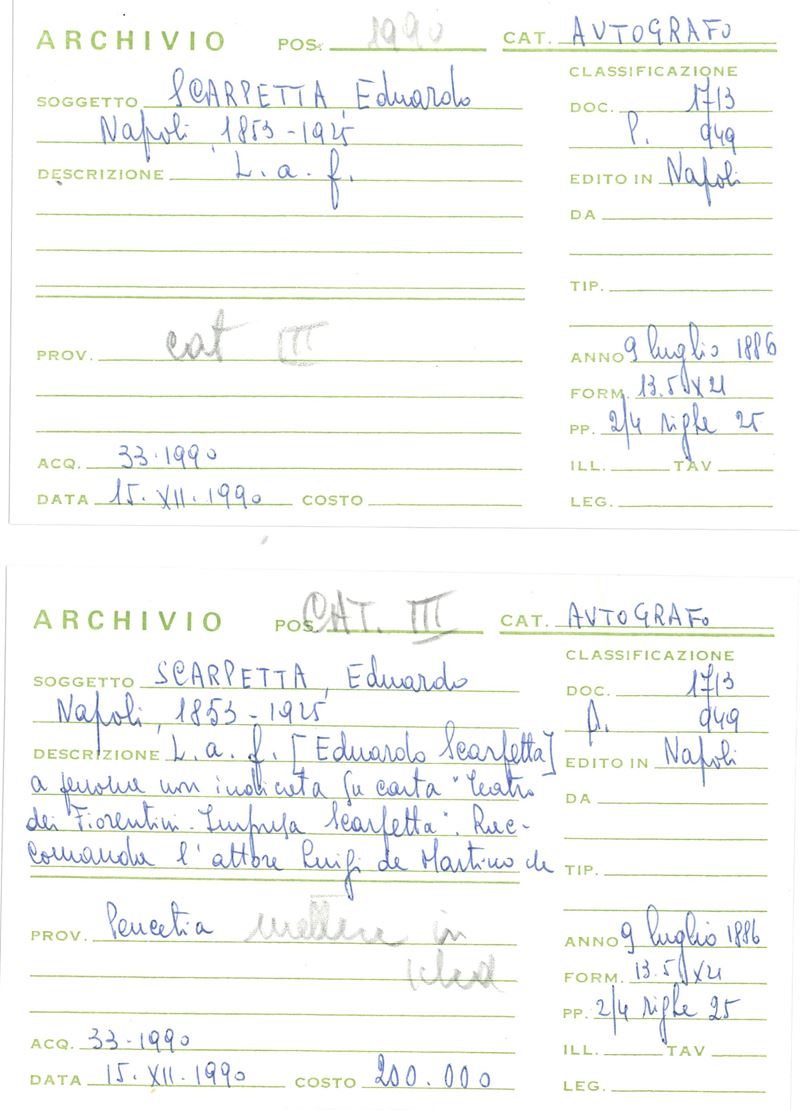 ARCHIVIO POS. 1990 CAT. AUTOGRAFO
CLASSIFICAZIONE
SOGGETTO SCARPETTA, Eduardo
DOC. 1713
Napoli, 1853-1925
P. 949
DESCRIZIONE L. a. f.
EDITO IN Napoli
DA
TIP.
PROV. cat III
ANNO 9 luglio 1886
FORM. 13.5 X 21
PP. 2/4 righe 25
ACQ. 33.1990
ILL. TAV
DATA 15.XII.1990 COSTO
LEG.
ARCHIVIO POS. CAT. III CAT. AUTOGRAFO
CLASSIFICAZIONE
SOGGETTO SCARPETTA, Eduardo
DOC. 1713
Napoli, 1853-1925
P. 949
DESCRIZIONE L. a. f. [Eduardo Scarpetta]
EDITO IN Napoli
a persona non indicata su carta "Teatro
DA
dei Fiorentini. Impresa Scarpetta". Rac-
comanda l'attore Luigi de Martino de
TIP.
PROV. Peucetia mettere in
ANNO 9 luglio 1886
FORM. 13.5 X 21
PP. 2/4 righe 25
ACQ. 33-1990
ILL. TAV
DATA 15.XII.1990 COSTO 200.000
LEG.